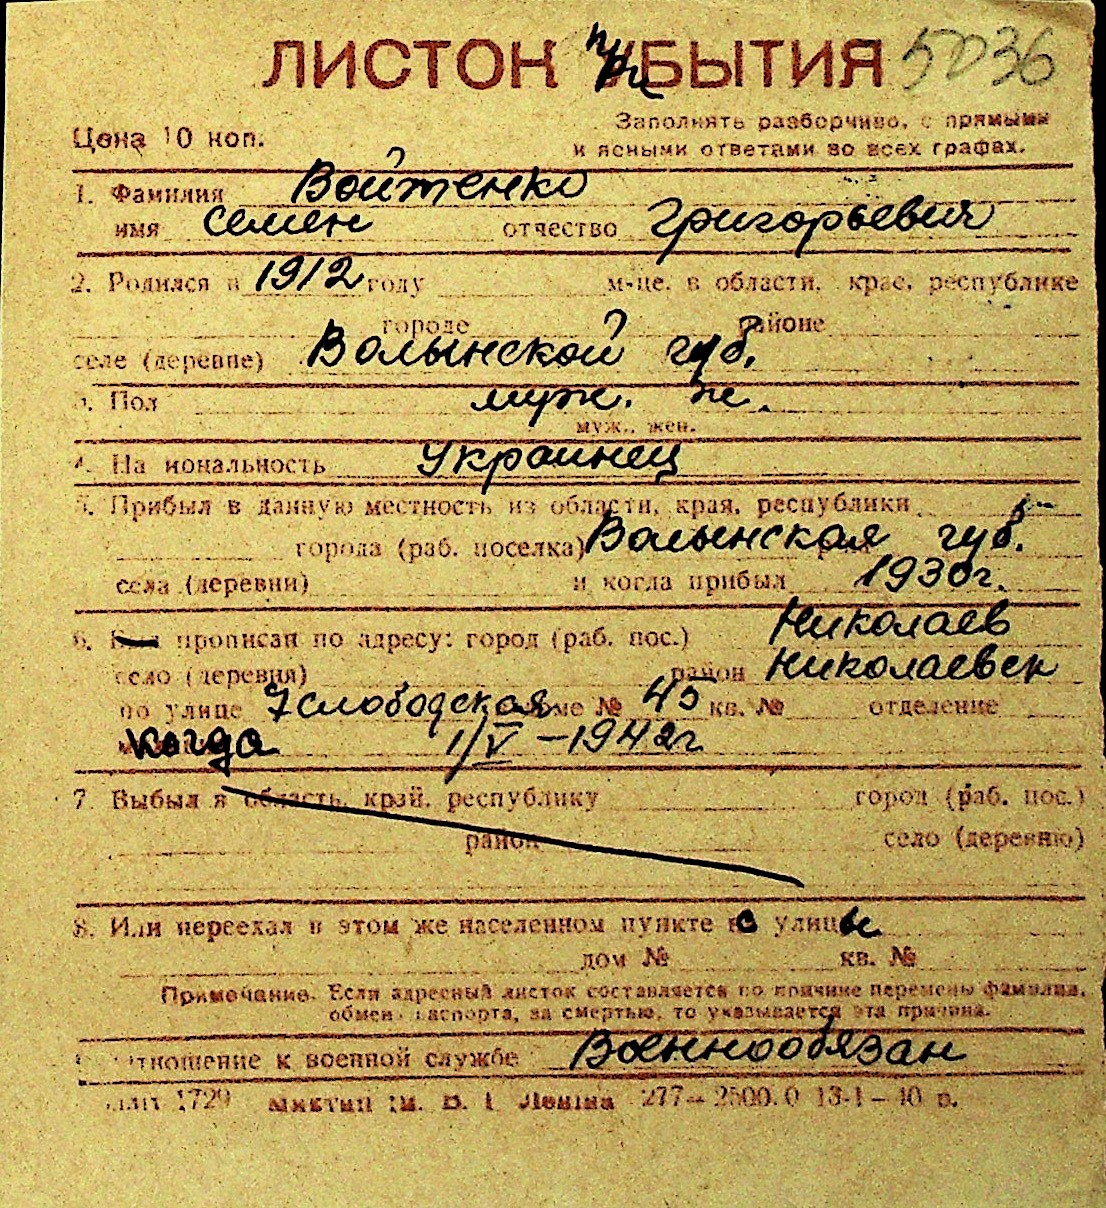 ЛИСТОК ПРИБЫТИЯ 5036
Цена 10 коп.
Заполнять разборчиво, с прямыми
и ясными ответами во всех графах.
1. Фамилия Войтенко
имя Семен отчество Григорьевич
2. Родился в 1912 году м-це. в области, крае, республике
городе районе
селе (деревне) Волынской губ.
3. Пол муж.
муж., жен.
4. Национальность Украинец
5. Прибыл в данную местность из области, края, республики
города (раб. поселка) Волынская губ.
села (деревни) и когда прибыл 1930г.
6. прописан по адресу: город (раб. пос.) Николаев
село (деревня) район Николаевск
по улице 7 Слободская доме № 45 кв. № отделение
когда 1/V – 1942г
7. Выбыл в область, край, республику город (раб. пос.)
район село (деревню)
8. Или переехал в этом же населенном пункте с улицы
дом № кв. №
Примечание. Если адресный листок составляется по причине перемены фамилии,
обмен паспорта, за смертью, то указывается эта причина.
отношение к военной службе Военнообязан
1729 им. В. І. Леніна 277–2500.0 13-1–40 р.